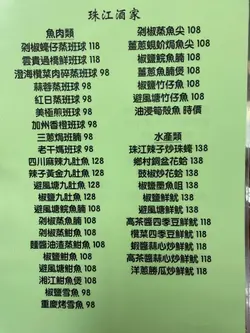 珠江酒家
魚肉類
剁椒蠔仔蒸班球 118
雲貴過橋鮮班球 118
澄海欖菜肉碎蒸班球 98
蒜蓉蒸班球 98
紅日蒸班球 98
美極煎班球 98
加州香橙班球 98
三蔥焗班腩 98
老干媽班球 98
四川麻辣九肚魚 128
辣子黃金九肚魚 128
避風塘九肚魚 128
椒鹽九肚魚 128
避風塘鯇魚腩 98
剁椒蒸魚腩 98
剁椒蒸鮒魚 98
豉醬油漬蒸鮒魚 98
椒鹽鮒魚 98
避風塘鮒魚 98
湘江鮒魚煲 98
椒鹽雪魚 98
重慶烤雪魚 98
剁椒蒸魚尖 108
薑蔥蜆蚧焗魚尖 108
椒鹽鯇魚腩 108
薑蔥魚腩煲 108
椒鹽竹仔魚 108
避風塘竹仔魚 108
油浸筍殼魚 時價
水產類
珠江辣子炒珠蠔 108
鄉村鍋盆花蛤 138
豉椒炒花蛤 138
椒鹽墨魚咀 108
椒鹽鮮魷 118
避風塘鮮魷 118
高茶醬四季豆鮮魷 118
欖菜四季豆鮮魷 118
蝦醬蒜心炒鮮魷 118
高茶醬蒜心炒鮮魷 118
洋蔥勝瓜炒鮮魷 118